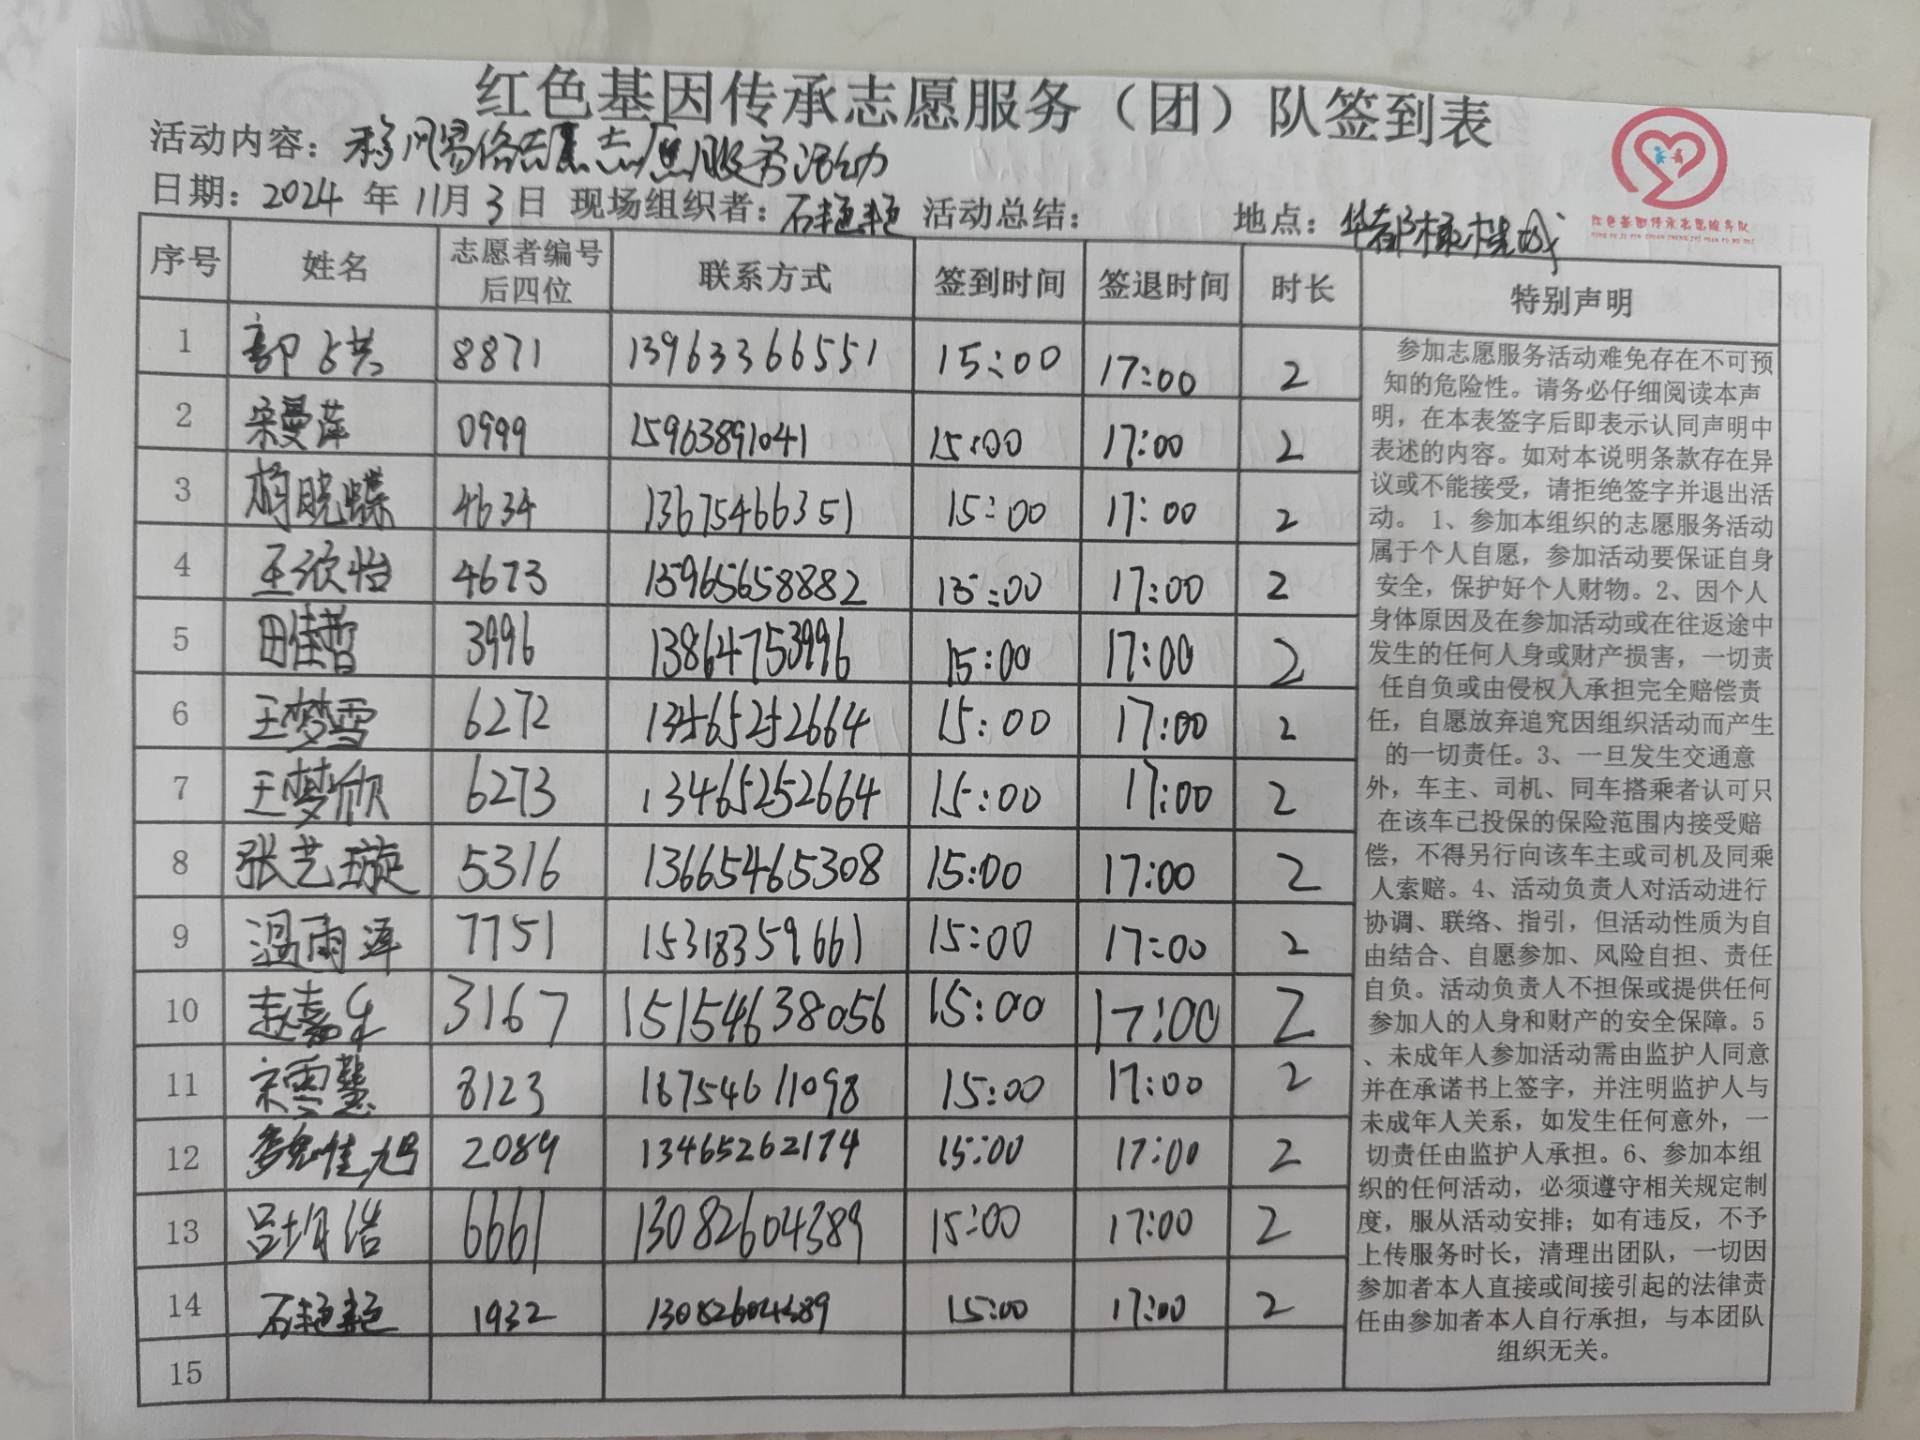 红色基因传承志愿服务（团）队签到表
活动内容：移风易俗志愿志愿服务活动
日期：2024年11月3日 现场组织者：石艳艳 活动总结： 地点：华都橄榄城
红色基因传承志愿服务队
序号 姓名 志愿者编号后四位 联系方式 签到时间 签退时间 时长 特别声明
1 郭占共 8871 13963366551 15:00 17:00 2
2 宋曼萍 0999 15963891041 15:00 17:00 2
3 杨晓蝶 4634 13675466351 15:00 17:00 2
4 王欣怡 4673 13965658882 15:00 17:00 2
5 田佳哲 3996 13864753996 15:00 17:00 2
6 王梦雪 6272 13465252664 15:00 17:00 2
7 王梦欣 6273 13465252664 15:00 17:00 2
8 张艺璇 5316 13665465308 15:00 17:00 2
9 温雨泽 7751 15318359661 15:00 17:00 2
10 赵嘉乐 3167 15154638056 15:00 17:00 2
11 宋雪慧 8123 18754611098 15:00 17:00 2
12 佳旭 2089 13465262174 15:00 17:00 2
13 吕玥浩 6661 13082604389 15:00 17:00 2
14 石艳艳 1932 13082604389 15:00 17:00 2
15
参加志愿服务活动难免存在不可预
知的危险性。请务必仔细阅读本声
明，在本表签字后即表示认同声明中
表述的内容。如对本说明条款存在异
议或不能接受，请拒绝签字并退出活
动。 1、参加本组织的志愿服务活动
属于个人自愿，参加活动要保证自身
安全，保护好个人财物。2、因个人
身体原因及在参加活动或在往返途中
发生的任何人身或财产损害，一切责
任自负或由侵权人承担完全赔偿责
任，自愿放弃追究因组织活动而产生
的一切责任。3、一旦发生交通意
外，车主、司机、同车搭乘者认可只
在该车已投保的保险范围内接受赔
偿，不得另行向该车主或司机及同乘
人索赔。4、活动负责人对活动进行
协调、联络、指引，但活动性质为自
由结合、自愿参加、风险自担、责任
自负。活动负责人不担保或提供任何
参加人的人身和财产的安全保障。5
、未成年人参加活动需由监护人同意
并在承诺书上签字，并注明监护人与
未成年人关系，如发生任何意外，一
切责任由监护人承担。6、参加本组
织的任何活动，必须遵守相关规定制
度，服从活动安排；如有违反，不予
上传服务时长，清理出团队，一切因
参加者本人直接或间接引起的法律责
任由参加者本人自行承担，与本团队
组织无关。